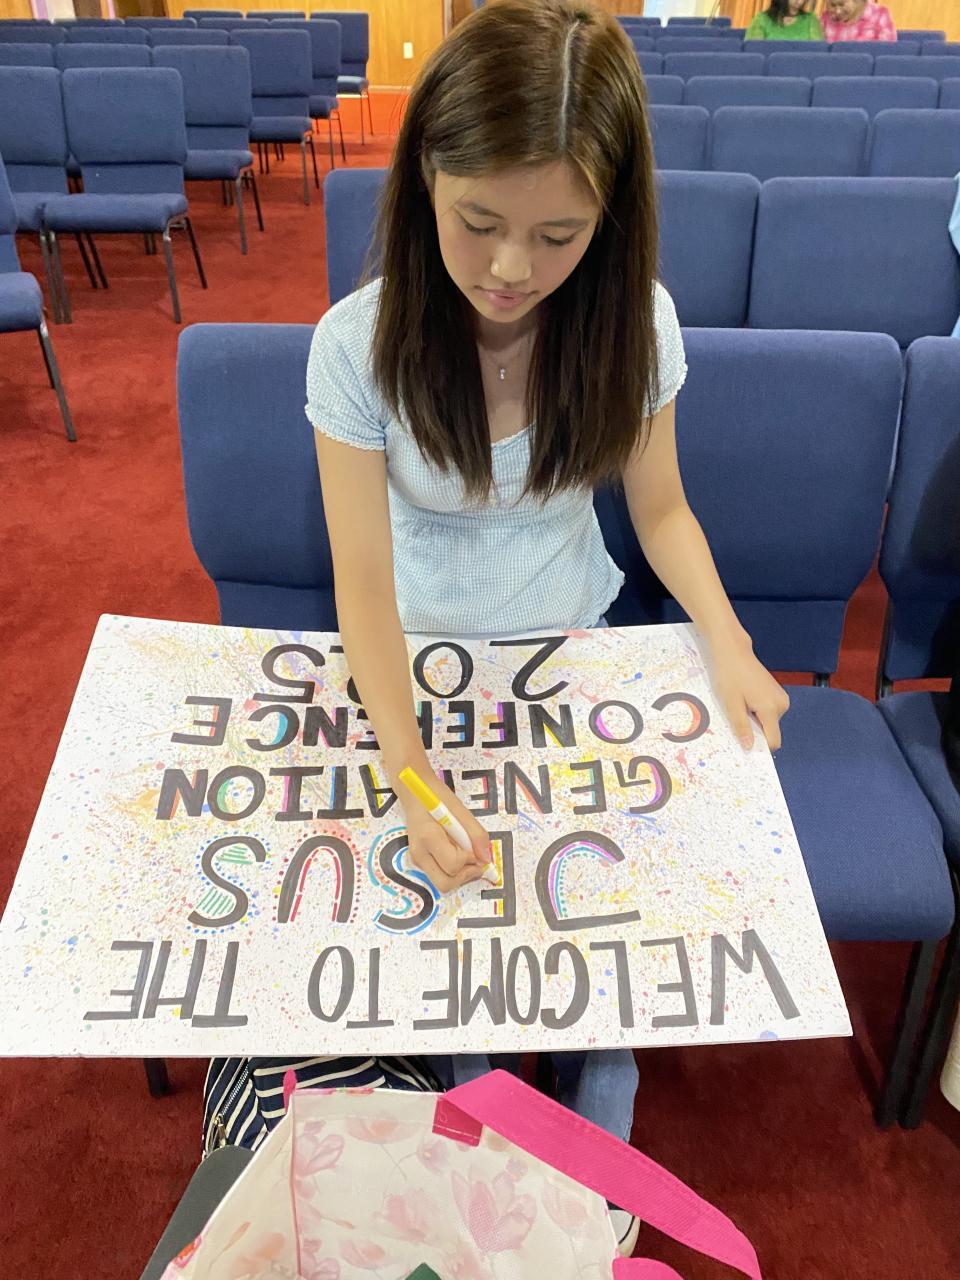 WELCOME TO THE
JESUS
GENERATION
CONFERENCE
2025